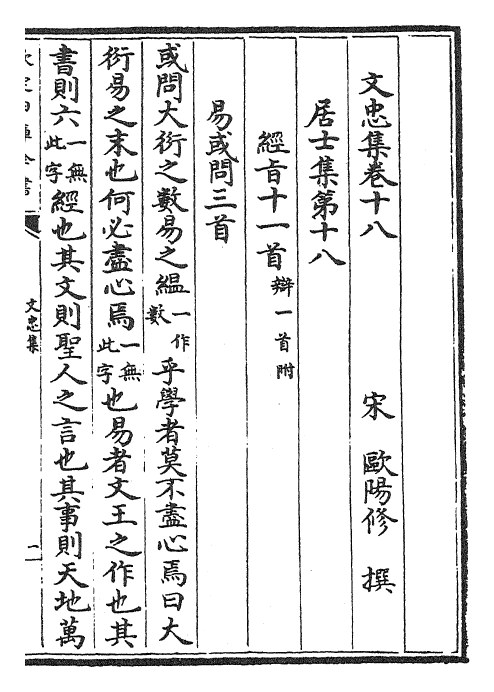 文忠集卷十八
宋　歐陽修　撰
居士集第十八
經旨十一首辯一首附
易或問三首
或問大衍之數易之緼一作數乎學者莫不盡心焉曰大
衍易之末也何必盡心焉一無此字也易者文王之作也其
書則六一無此字經也其文則聖人之言也其事則天地萬
文忠集